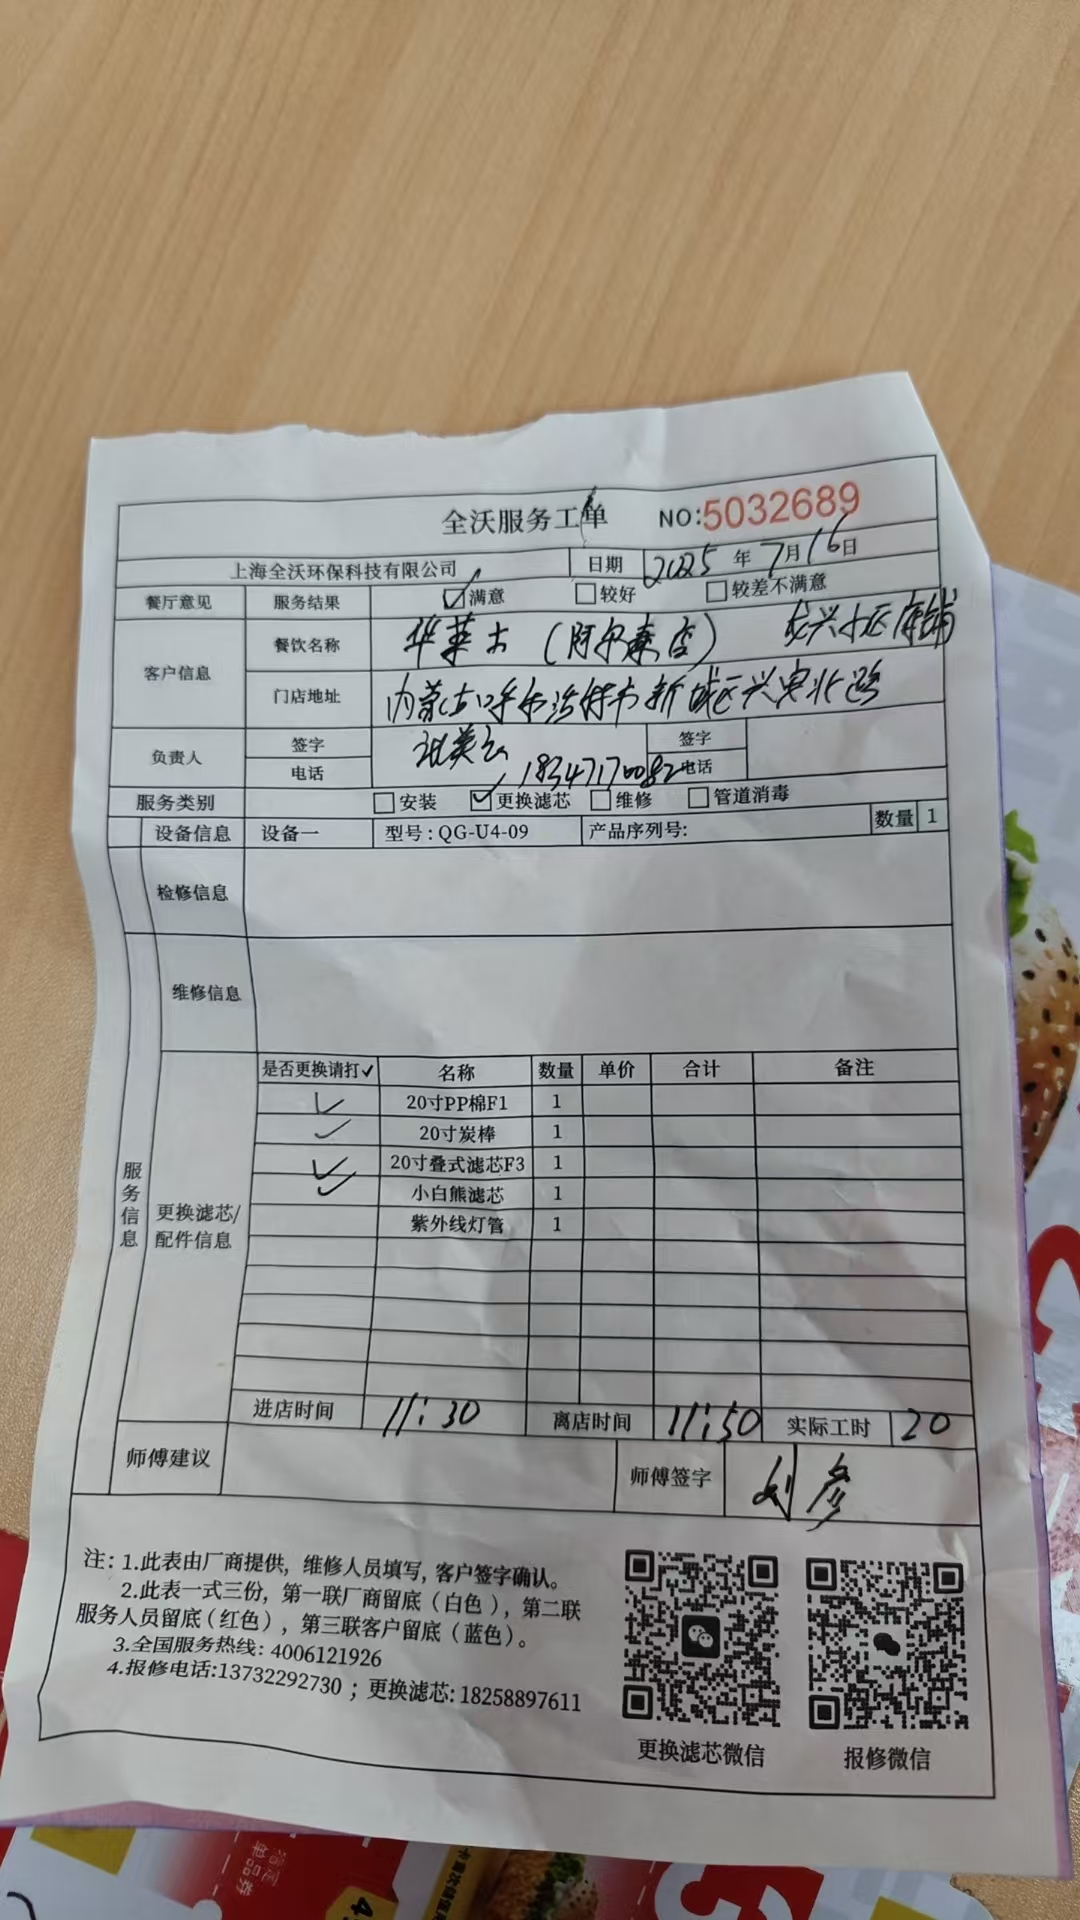 全沃服务工单 NO:5032689
上海全沃环保科技有限公司 日期 2025年7月16日
餐厅意见 服务结果 ☑满意 □较好 □较差不满意
客户信息 餐饮名称 华莱士(阿尔泰店) 龙兴小区店铺
门店地址 内蒙古呼和浩特市新城区兴安北路
负责人 签字 签字
电话 18347170082 电话
服务类别 □安装 ☑更换滤芯 □维修 □管道消毒
服务信息
设备信息 设备一 型号:QG-U4-09 产品序列号: 数量 1
检修信息
维修信息
更换滤芯/配件信息
是否更换请打✓ 名称 数量 单价 合计 备注
✓ 20寸PP棉F1 1
✓ 20寸炭棒 1
✓ 20寸叠式滤芯F3 1
✓ 小白熊滤芯 1
紫外线灯管 1
进店时间 11:30 离店时间 11:50 实际工时 20
师傅建议 师傅签字 刘彦
注:1.此表由厂商提供,维修人员填写,客户签字确认。
2.此表一式三份,第一联厂商留底(白色),第二联
服务人员留底(红色),第三联客户留底(蓝色)。
3.全国服务热线:4006121926
4.报修电话:13732292730;更换滤芯:18258897611
更换滤芯微信 报修微信